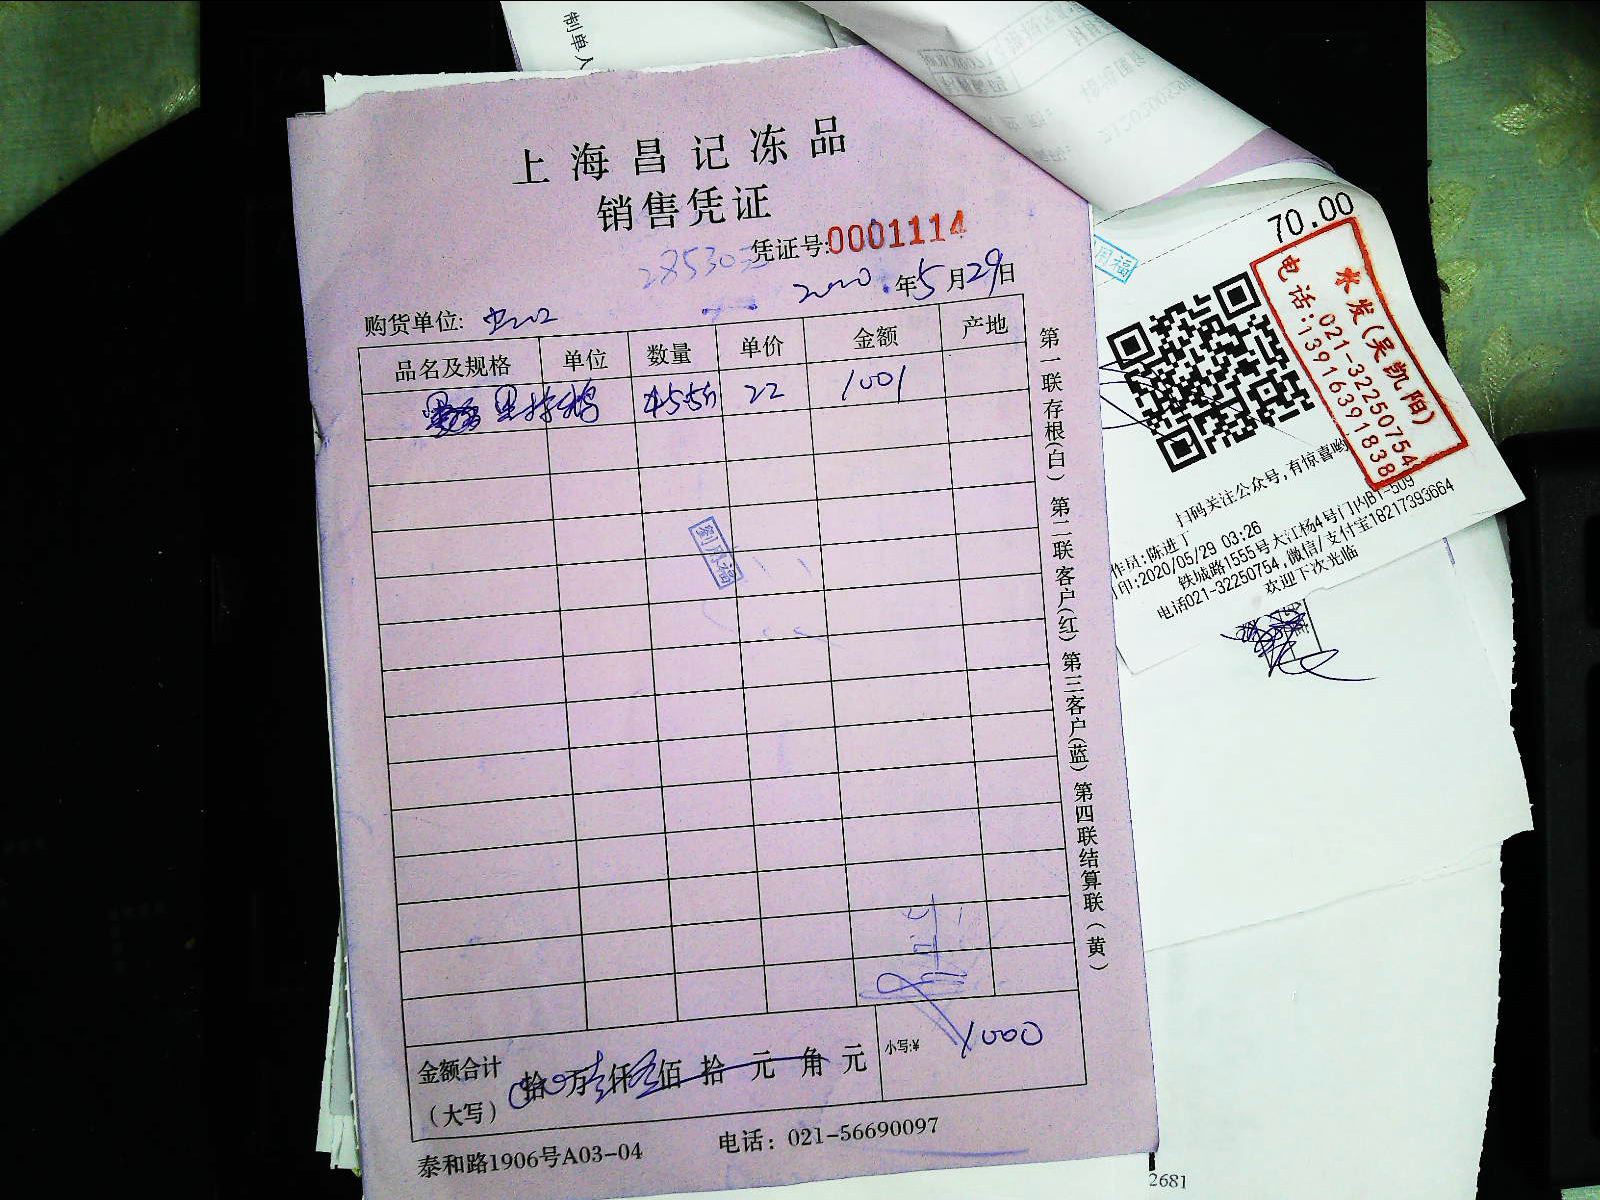 制单人
上海昌记冻品
销售凭证
凭证号:0001114
28530元
2020年5月29日
购货单位:
品名及规格 单位 数量 单价 金额 产地
22 1001
第一联存根(白) 第二联客户(红) 第三客户(蓝) 第四联结算联(黄)
金额合计
(大写)
拾 万 仟 佰 拾 元 角 元
小写:¥ 1000
泰和路1906号A03-04 电话: 021-56690097
70.00
水发(吴凯阳)
电话:021-32250754
13916391838
扫码关注公众号,有惊喜哟
作员:陈进丁
印:2020/05/29 03:26
铁城路1555号大江杨4号门内B1-509
电话021-32250754,微信/支付宝18217393664
欢迎下次光临
2681